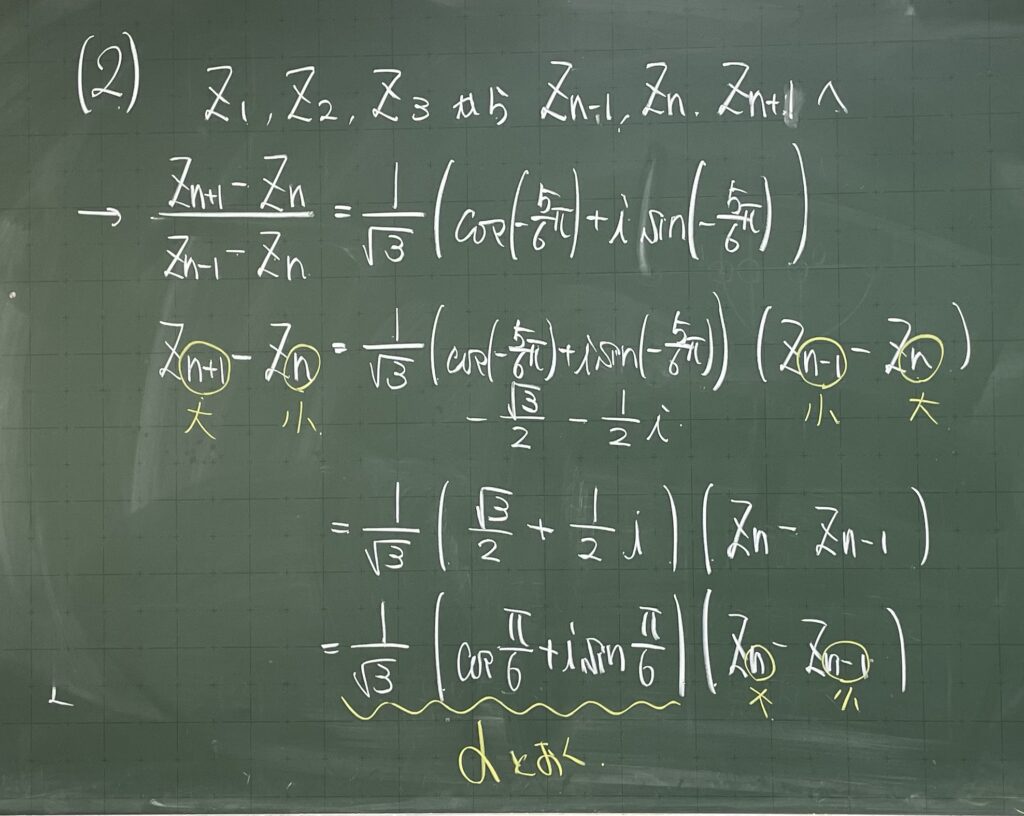 (2) Z₁, Z₂, Z₃ から Zₙ₋₁, Zₙ, Zₙ₊₁ へ
→ (Zₙ₊₁ - Zₙ)/(Zₙ₋₁ - Zₙ) = 1/√3 (cos(-5/6 π) + i sin(-5/6 π))
Zₙ₊₁ - Zₙ = 1/√3 (cos(-5/6 π) + i sin(-5/6 π)) (Zₙ₋₁ - Zₙ)
大 小 -√3/2 - 1/2 i 小 大
= 1/√3 (√3/2 + 1/2 i) (Zₙ - Zₙ₋₁)
= 1/√3 (cos π/6 + i sin π/6) (Zₙ - Zₙ₋₁)
大 小
αとおく